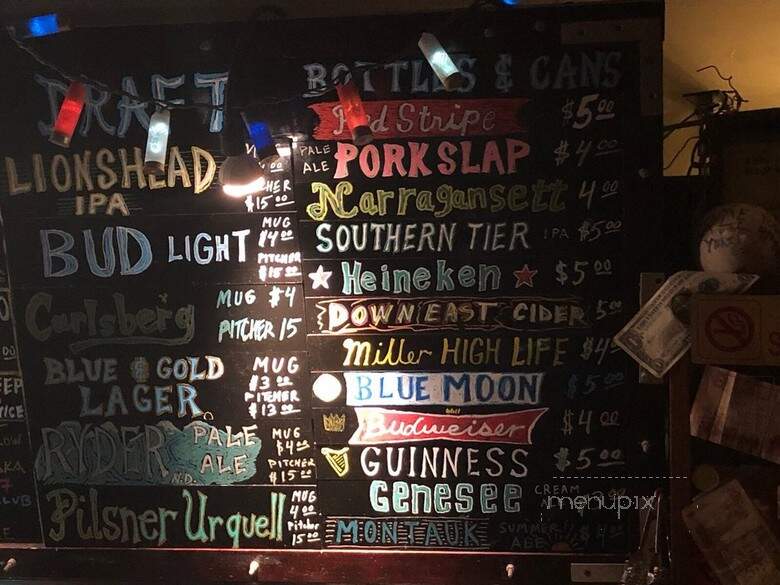 DRAFT
LIONSHEAD
IPA
$15.00
BUD LIGHT
MUG
$4.00
PITCHER
$15.00
Carlsberg
MUG $4
PITCHER 15
BLUE & GOLD
LAGER
MUG
$3.00
PITCHER
$13.00
RYDER PALE
ALE
MUG
$4.00
PITCHER
$15.00
Pilsner Urquell
MUG
4.00
Pitcher
15.00
BOTTLES & CANS
Red Stripe $5.00
PALE
ALE
PORK SLAP $4.00
Narragansett 4.00
SOUTHERN TIER IPA $5.00
Heineken $5.00
DOWNEAST CIDER 5.00
Miller HIGH LIFE $4
BLUE MOON $5.00
Budweiser $4.00
GUINNESS $5.00
Genesee CREAM
MONTAUK SUMMER
ALE
menupix